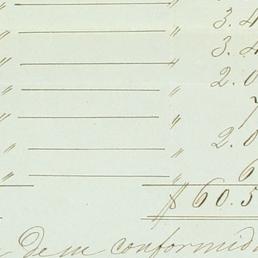 " " 3.4
" " 3.4
" " 2.0
" " 7
" " 2.0
" " 6
$ 60.5
De conformid